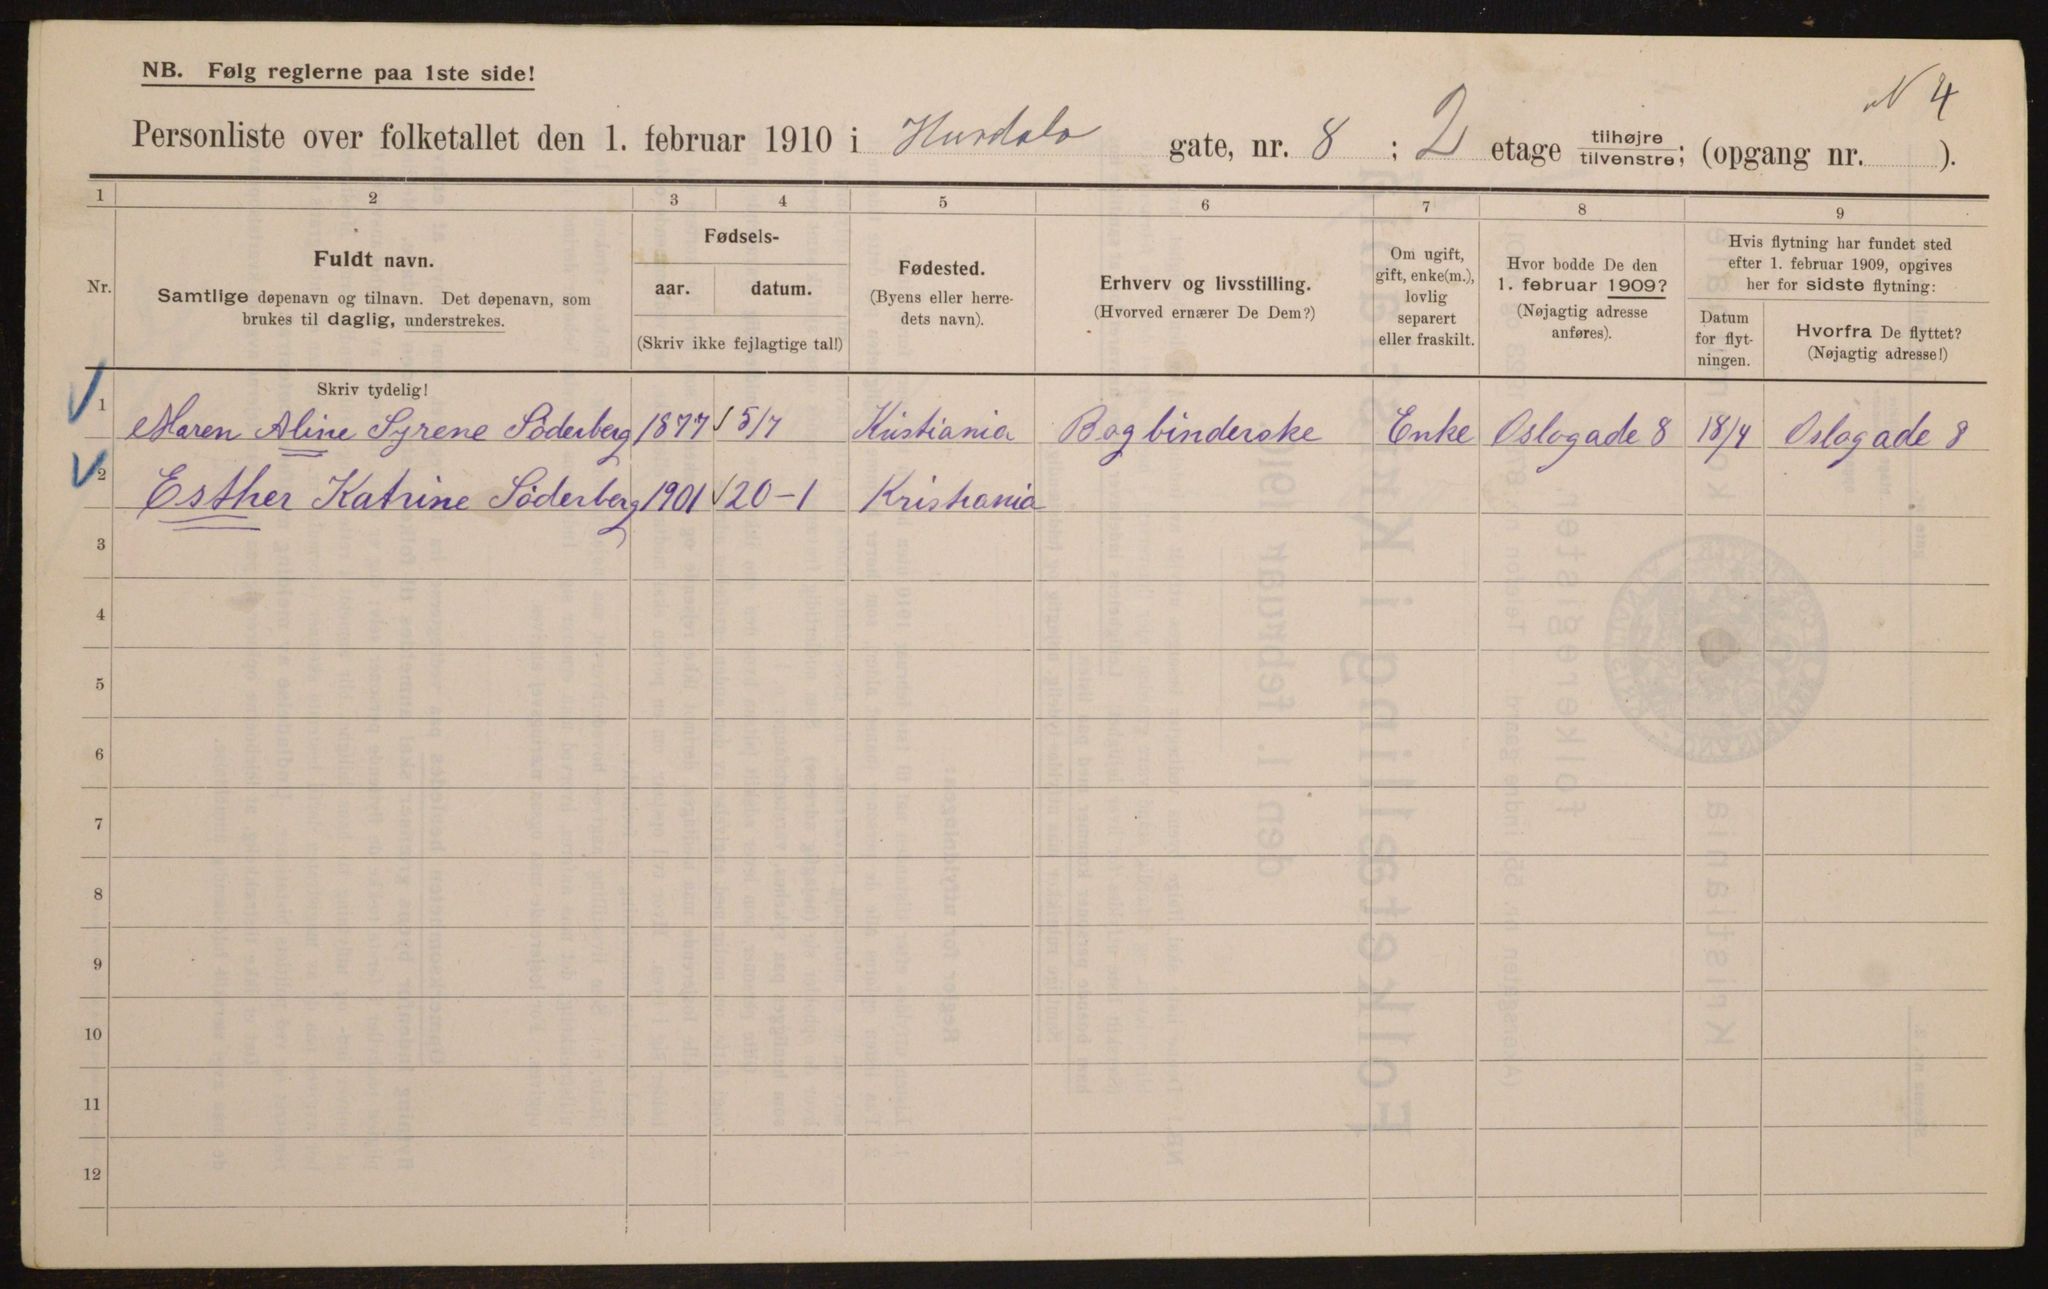 NB. Følg reglerne paa 1ste side!
N 4
Personliste over folketallet den 1. februar 1910 i Hurdals gate, nr. 8 ; 2 etage tilhøjre/tilvenstre; (opgang nr. ).
1 2 3 4 5 6 7 8 9
Nr.
Fuldt navn.
Samtlige døpenavn og tilnavn. Det døpenavn, som
brukes til daglig, understrekes.
Fødsels-
aar. datum.
(Skriv ikke fejlagtige tal!)
Fødested.
(Byens eller herre-
dets navn).
Erhverv og livsstilling.
(Hvorved ernærer De Dem?)
Om ugift,
gift, enke(m.),
lovlig
separert
eller fraskilt.
Hvor bodde De den
1. februar 1909?
(Nøjagtig adresse
anføres).
Hvis flytning har fundet sted
efter 1. februar 1909, opgives
her for sidste flytning:
Datum
for flyt-
ningen.
Hvorfra De flyttet?
(Nøjagtig adresse!)
Skriv tydelig!
1 Maren Aline Syrene Söderberg 1877 5/7 Kristiania Bogbinderske Enke Oslogade 8 18/4 Oslogade 8
2 Esther Katrine Söderberg 1901 20-1 Kristiania
3
4
5
6
7
8
9
10
11
12